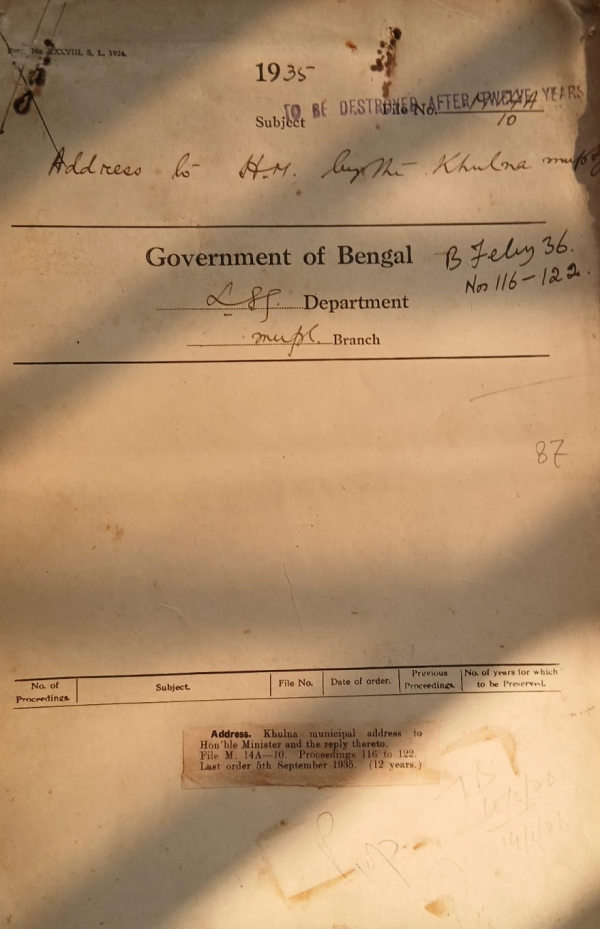 No. XXXVIII. S. L. 1924.
1935
TO BE DESTROYED AFTER TWELVE YEARS
File No.
10
Subject
Address to H.M. by the Khulna
Government of Bengal
B Feby 36.
Nos 116-122.
LSG. Department
Mupl. Branch
87
No. of Proceedings.
Subject.
File No.
Date of order.
Previous Proceedings.
No. of years for which to be Preserved.
Address. Khulna municipal address to
Hon'ble Minister and the reply thereto.
File M. 14A—10. Proceedings 116 to 122.
Last order 5th September 1935. (12 years.)